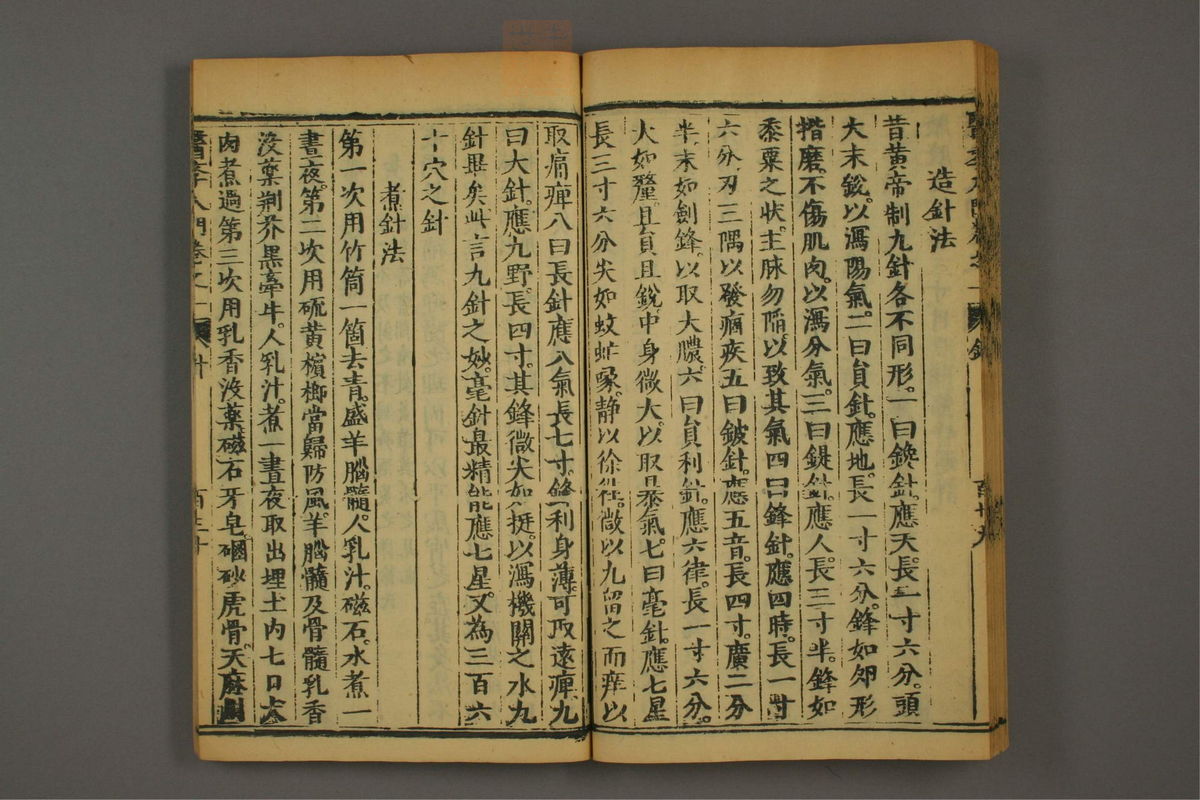 造針法
昔黃帝制九針各不同形一曰鑱針應天長一寸六分頭
大末銳以瀉陽氣二曰員針應地長一寸六分鋒如卵形
揩磨不傷肌肉以瀉分氣三曰鍉針應人長三寸半鋒如
黍粟之狀主脉勿陷以致其氣四曰鋒針應四時長一寸
六分刃三隅以發痼疾五曰鈹針應五音長四寸廣二分
半末如劍鋒以取大膿六曰員利針應六律長一寸六分
大如氂且員且銳中身微大以取暴氣七曰毫針應七星
長三寸六分尖如蚊虻喙静以徐往微以久留之而痒以
取痛痺八曰長針應八氣長七寸鋒利身薄可取遠痺九
曰大針應九野長四寸其鋒微尖如挺以瀉機關之水九
針畢矣此言九針之妙毫針最精能應七星又為三百六
十穴之針
煮針法
第一次用竹筒一箇去青盛羊腦髓人乳汁磁石水煮一
晝夜第二次用硫黃檳榔當歸防風羊腦髓及骨髓乳香
沒藥荆芥黑牽牛人乳汁煮一晝夜取出埋土内七日
肉煮過第三次用乳香沒藥磁石牙皂硇砂虎骨天麻川
醫學入門卷之一